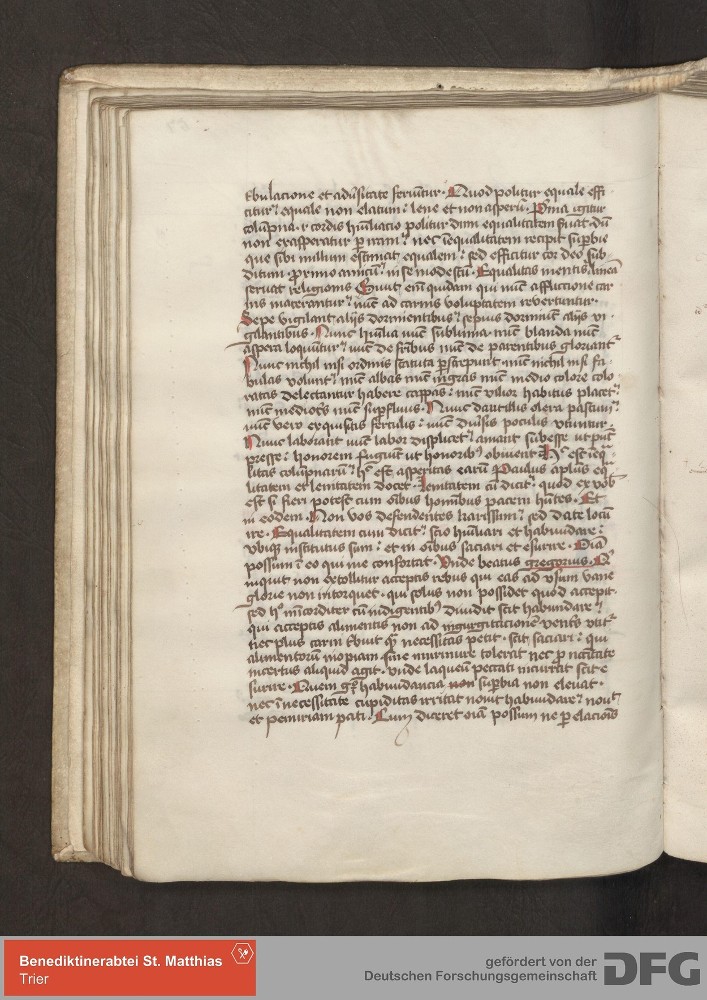 tbulacione et adu͛sitate seruãtur. Quod politur equale effi
citur? equale non elatum: lene et non asperũ. Prima igitur
colũpna .i. cordis hũiliacio politur dum equalitatem suat. dũ
non exasperatur p iram? nec ĩequalitatem recipit supbie
que sibi nullum estimat equalem: sed efficitur cor deo sub
ditum proximo amicũ? in se modestũ. Equalitas mentis lineã
seruat religionis. Sunt em̃ quidam qui nũc affliccione car
nis macerantur? nũc ad carnis voluptatem revertuntur.
Sepe vigilant alijs dormientibus? sepius dormiũt alijs vi
gilantibus. Nunc hũilia nũc sublimia. nũc blanda nũc
aspera loquũtur? nũc de fr̃ibus nũc de parentibus gloriant᷑
Nunc nichil nisi ordinis statuta pstrepunt. nũc nichil nisi fa
bulas volunt? nũc albas nũc nigras nũc medio colore colo
ratas delectantur habere cappas: nũc vilior habitus placet?
nũc mediocͥs nũc supfluus. Nunc dantillis olera pascunt᷑?
nũc vero exquisitis ferculis: nũc diu͛sis poculis vtuntur.
Nunc laborant nũc labor displicet? amant subesse ut pũt
preesse: honorem fugiũt ut honoribꝰ obuient. Hͨ est ĩeq̃
litas colũpnarũ? hͨ est asperitas earũ. Paulus apl̃us eq̃
litatem et lenitatem docet. Lenitatem cũ dicit? quod ex vob̃
est si fieri potest cum oĩbus hominibus pacem hñtes. Et
in eodem. Non vos defendentes karissimi? sed date locũ
ire. Equalitatem cum dicit: scio hũiliari et habundare:
vbiqꝫ institutus sum: et in oĩbus saciari et esurire. Oĩa
possum ĩ eo qui me confortat. Unde beatus gregorius. Qͥ
inquit non extollitur acceptis rebus qui eas ad vsum vane
glorie non intorquet. qui solus non possidet quod accepit.
sed hͦ mĩcorditer cũ indigentibꝰ diuidit scit habundare?
qui acceptis alimentis non ad ingurgitacionẽ ventͥs vtit᷑
nec plus carni tribuit qͣ̃ necessitas petit. scit saciari: qui
alimentorũ inopiam sine murmure tolerat nec p nc̃citate
incertus aliquid agit. vnde laqueũ peccati incurrat scit e
surire. Quem gͦ habundancia non supbia non eleuat.
nec ĩ necessitate cupiditas irritat nouit habundare? nouit
et penuriam pati. Cum diceret oĩa possum ne p elacioñs
Benediktinerabtei St. Matthias
Trier
gefördert von der
Deutschen Forschungsgemeinschaft DFG